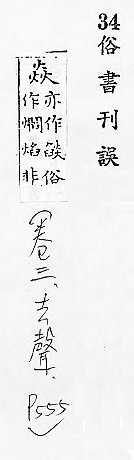 34俗書刊誤
焱
亦作燄俗
作爓焰非
(卷三、去聲、
P555)